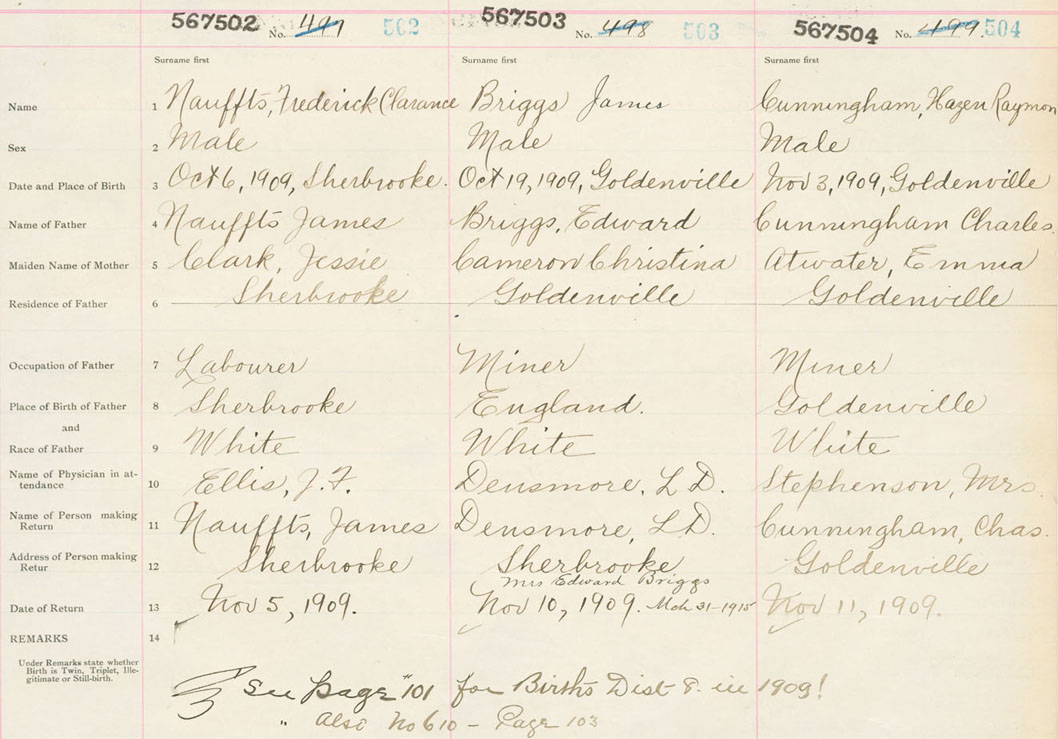 567502 No. 497 502 567503 No. 498 503 567504 No. 499. 504
Surname first Surname first Surname first
Name 1 Nauffts, Frederick Clarance Briggs James Cunningham, Hazen Raymon
Sex 2 Male Male Male
Date and Place of Birth 3 Oct 6, 1909, Sherbrooke. Oct 19, 1909, Goldenville Nov 3, 1909, Goldenville
Name of Father 4 Nauffts James Briggs, Edward Cunningham Charles.
Maiden Name of Mother 5 Clark, Jessie Cameron Christina Atwater, Emma
Residence of Father 6 Sherbrooke Goldenville Goldenville
Occupation of Father 7 Labourer Miner Miner
Place of Birth of Father 8 Sherbrooke England. Goldenville
and
Race of Father 9 White White White
Name of Physician in at-
tendance 10 Ellis, J. F. Densmore, L D. Stephenson, Mrs.
Name of Person making
Return 11 Nauffts, James Densmore, L.D. Cunningham, Chas.
Address of Person making
Retur 12 Sherbrooke Sherbrooke Goldenville
Mrs Edward Briggs
Date of Return 13 Nov 5, 1909. Nov 10, 1909. Mch 31-1915 Nov 11, 1909.
REMARKS 14
Under Remarks state whether
Birth is Twin, Triplet, Ille-
gitimate or Still-birth.
See page "101 for Births Dist 8. in 1909!
" Also No 610 - Page 103